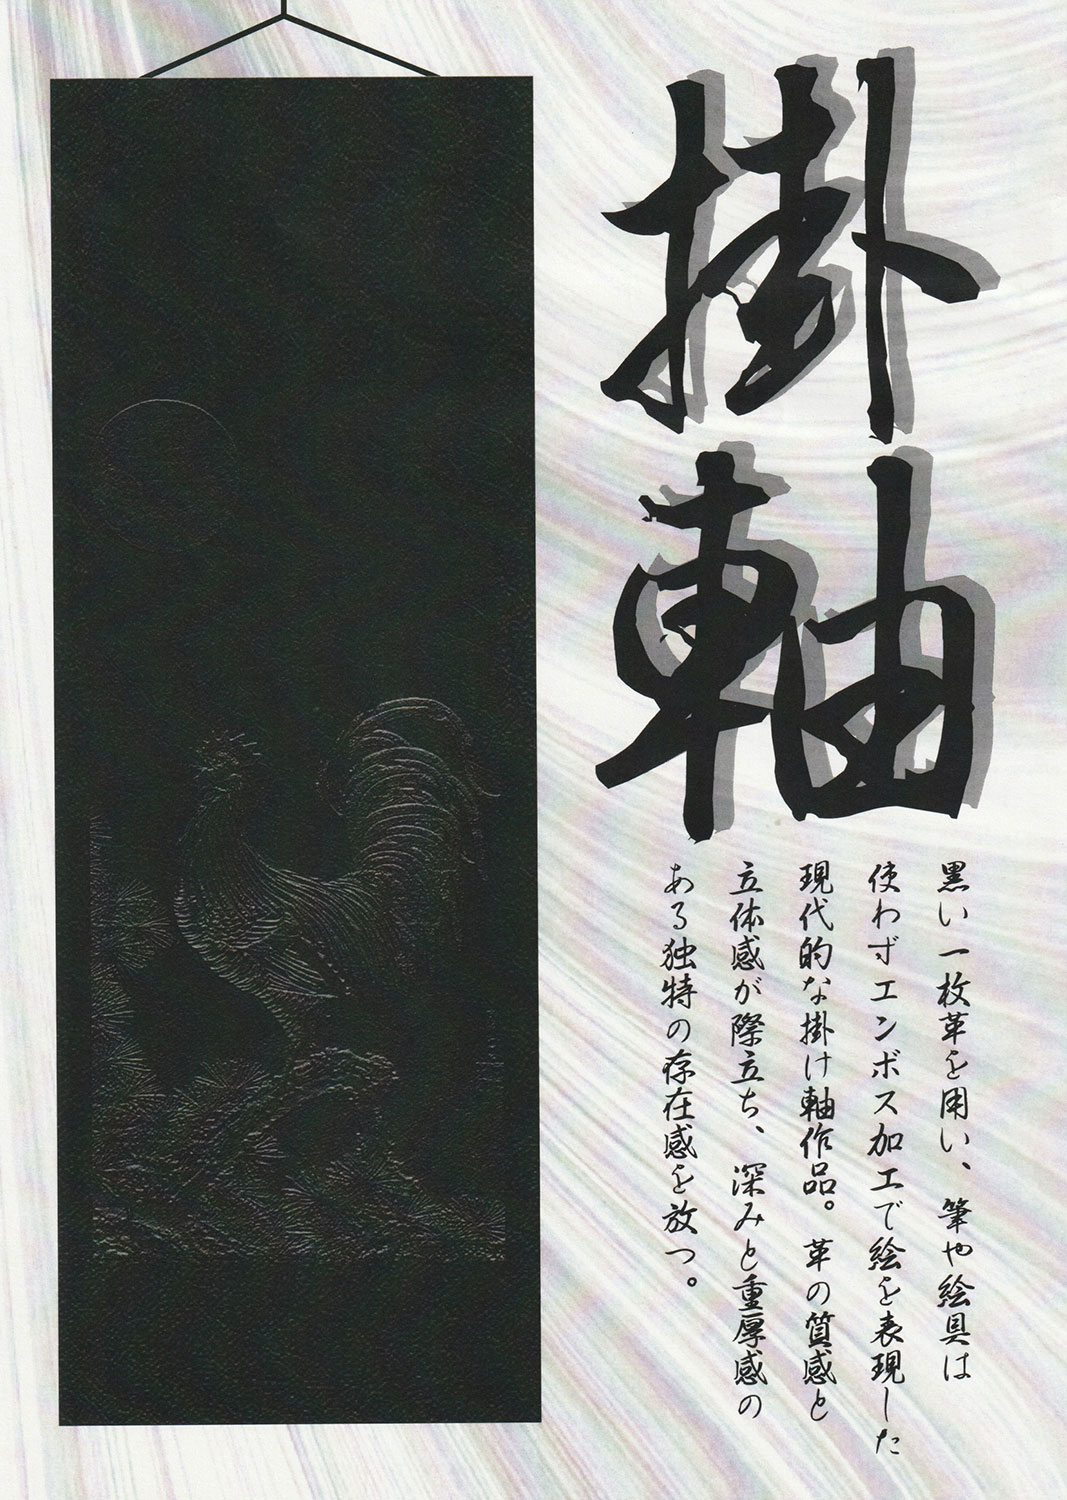 掛軸
黒い一枚革を用い、筆や絵具は
使わずエンボス加工で絵を表現した
現代的な掛け軸作品。革の質感と
立体感が際立ち、深みと重厚感の
ある独特の存在感を放つ。